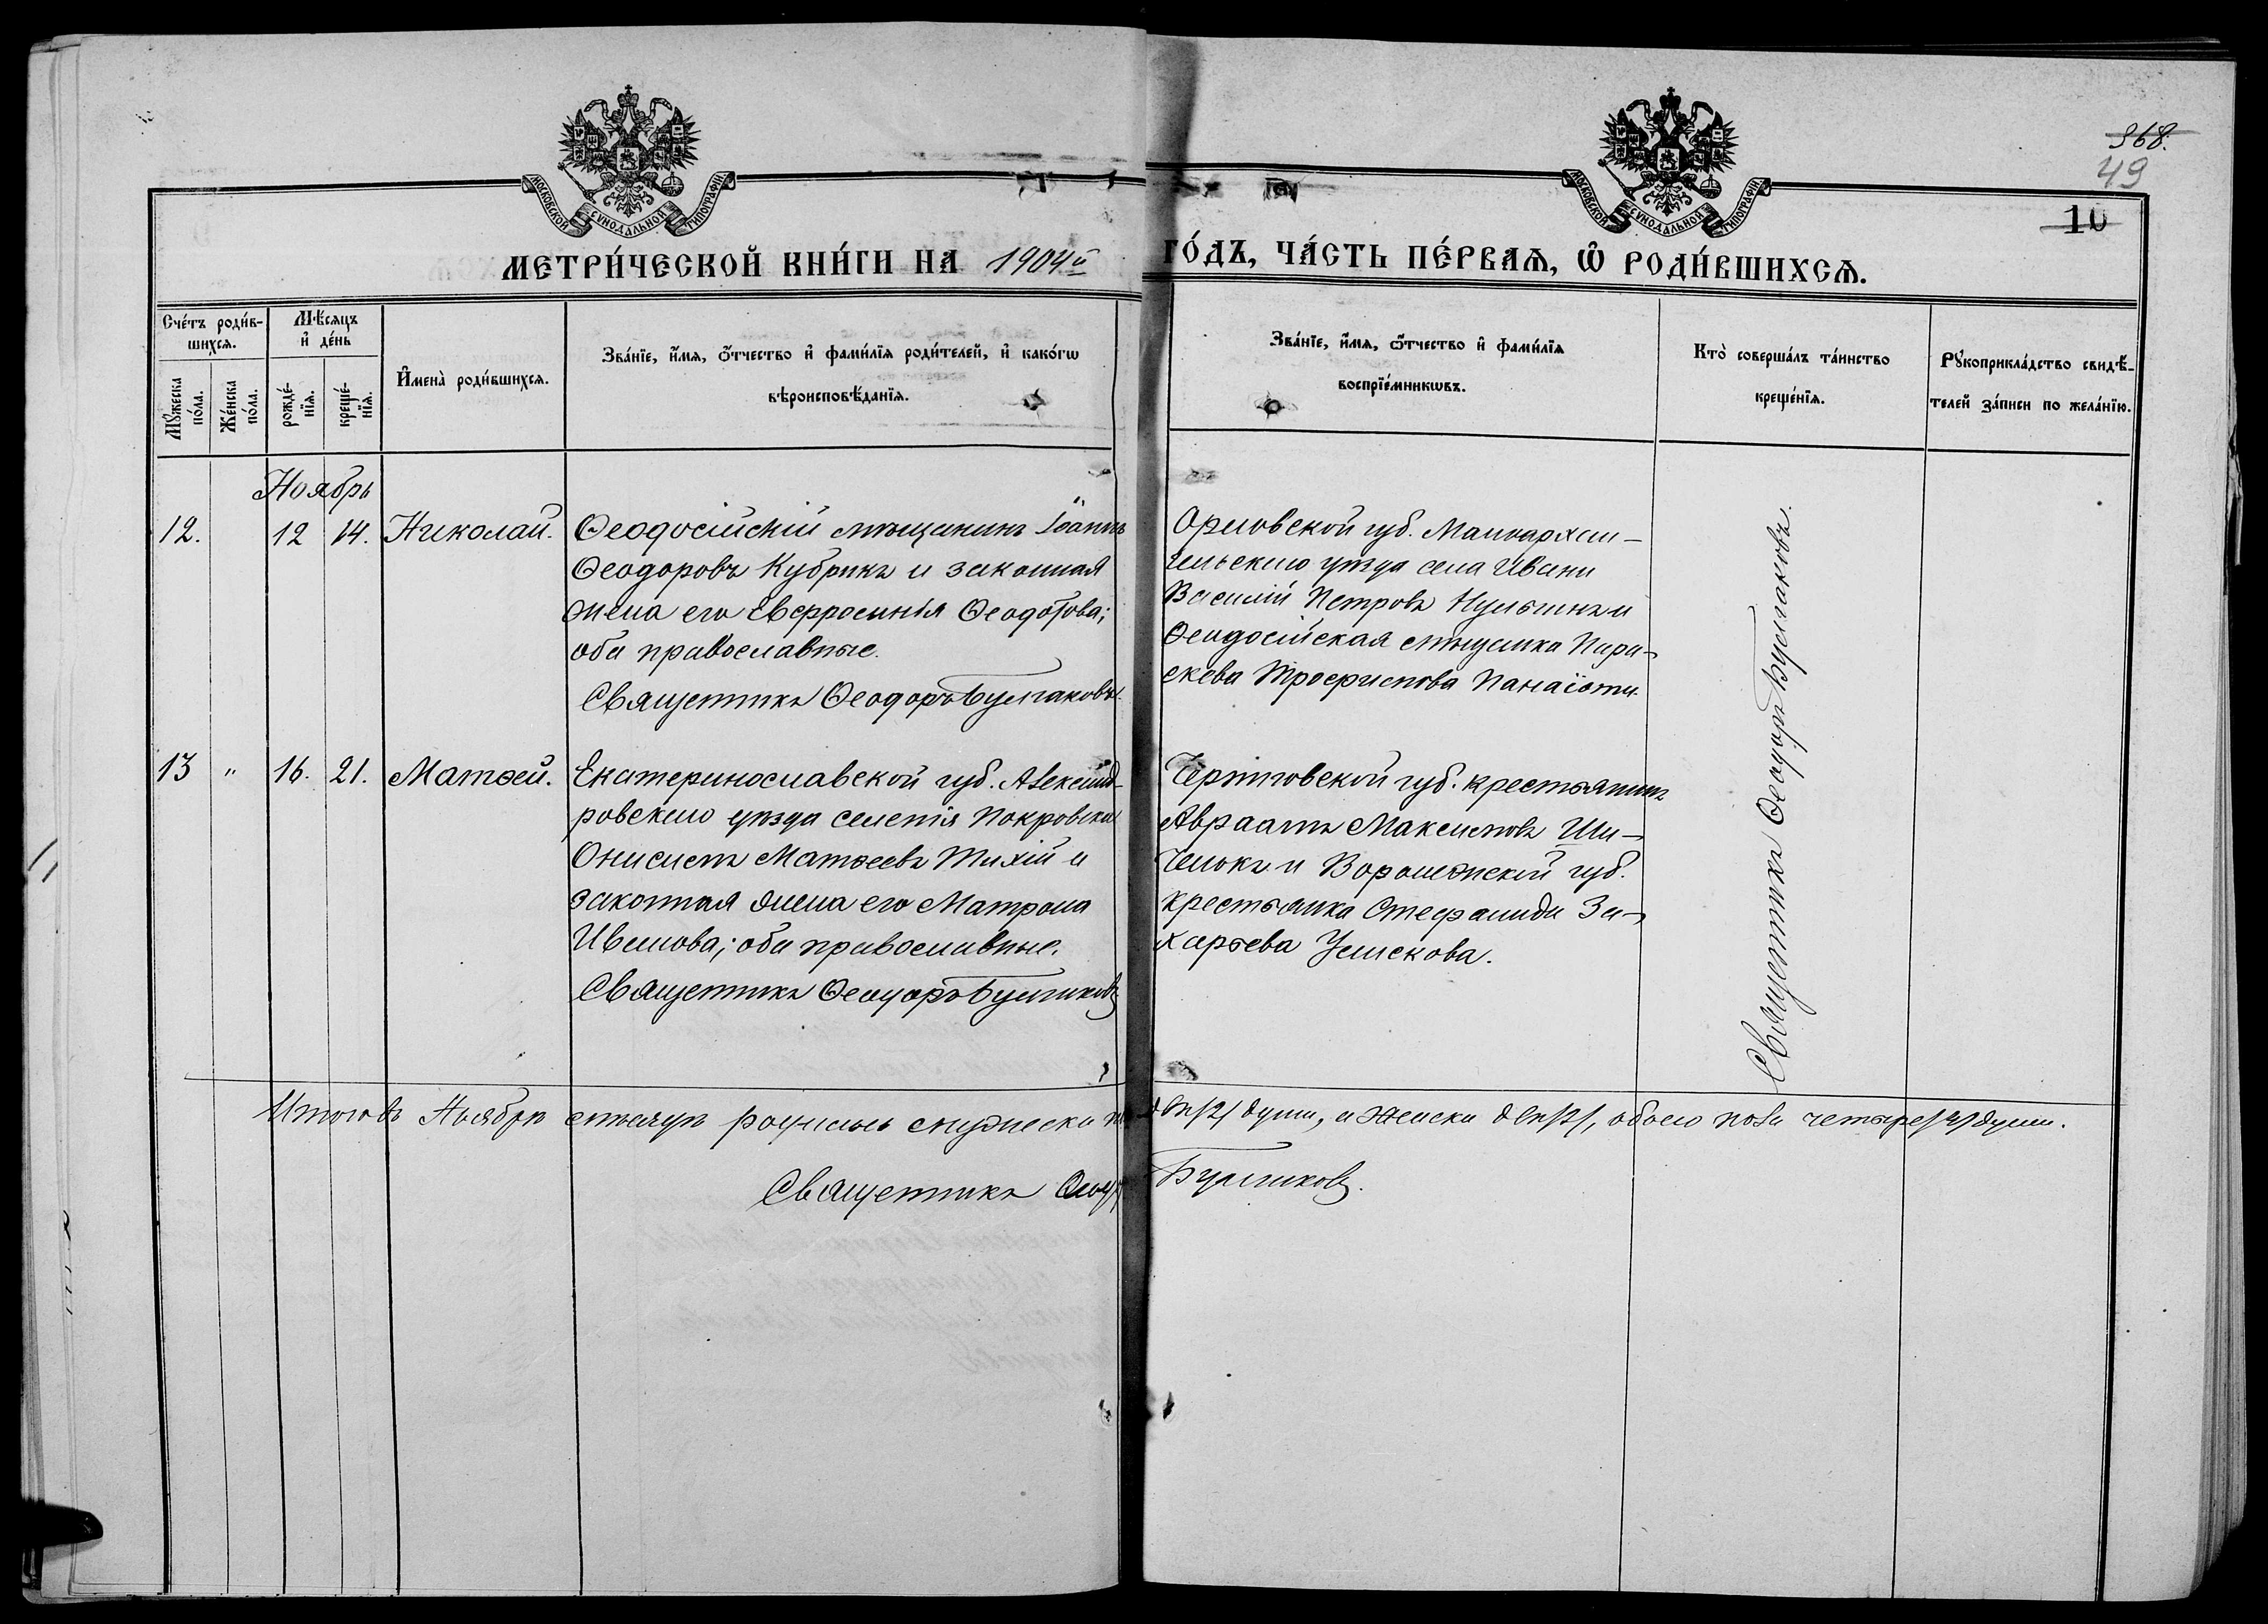 968.
49
10
МОСКОВСКОЙ СѴНОДАЛЬНОЙ ТИПОГРАФІИ
МОСКОВСКОЙ СѴНОДАЛЬНОЙ ТИПОГРАФІИ
МЕТРИ́ЧЕСКОЙ КНИ́ГИ НА 1904й ГО́ДЪ, ЧА́СТЬ ПЕ́РВАѦ, Ѡ РОДИ́ВШИХСѦ.
Сче́тъ роди́в-
шихсѧ.
Мꙋ́жеска по́ла.
Же́нска по́ла.
Мѣ́сѧцъ и҆ де́нь
рожде́-
нїѧ.
креще́-
нїѧ.
И҆мена̀ роди́вшихсѧ.
Зва́нїе, и҆́мѧ, ѻ҆́тчество и҆ фами́лїѧ роди́телей, и҆ како́гѡ
вѣроисповѣ́данїѧ.
Зва́нїе, и҆́мѧ, ѻ҆́тчество и҆ фами́лїѧ
воспрїе́мникѡвъ.
Кто̀ соверша́лъ та́инство
креще́нїѧ.
Рꙋкоприкла́дство свидѣ́-
телей за́писи по жела́нїю.
Ноябрь
12. 12 14. Николай.
Ѳеодосійскій мѣщанинъ Іоаннъ
Ѳеодоровъ Кубрикъ и законная
жена его Евфросинія Ѳеодотова;
оба православные.
Священникъ Ѳеодоръ Булгаковъ.
Орловской губ. Малоархан-
гельскаго уѣзда села Ивани
Василій Петровъ и
Ѳеодосійская мѣщанка Пара-
скева Трофимова Панаіоти.
13 " 16. 21. Матѳей.
Екатеринославской губ. Александ-
ровскаго уѣзда селенія Покровска
Онисимъ Матѳеевъ Тихій и
законная жена его Матрона
Иванова; оба православные.
Священникъ Ѳеодоръ Булгаковъ
Черниговской губ. крестьянинъ
Авраамъ Максимовъ Ши-
и Воронежской губ.
крестьянка Стефанида За-
харьева Ускова.
Священникъ Ѳеодоръ Булгаковъ.
Итого въ Ноябрѣ мѣсяцѣ родилось мужеска по двѣ /2/ души, а женска двѣ /2/, обоего пола четыре /4/ души.
Священникъ Ѳеод Булгаковъ.